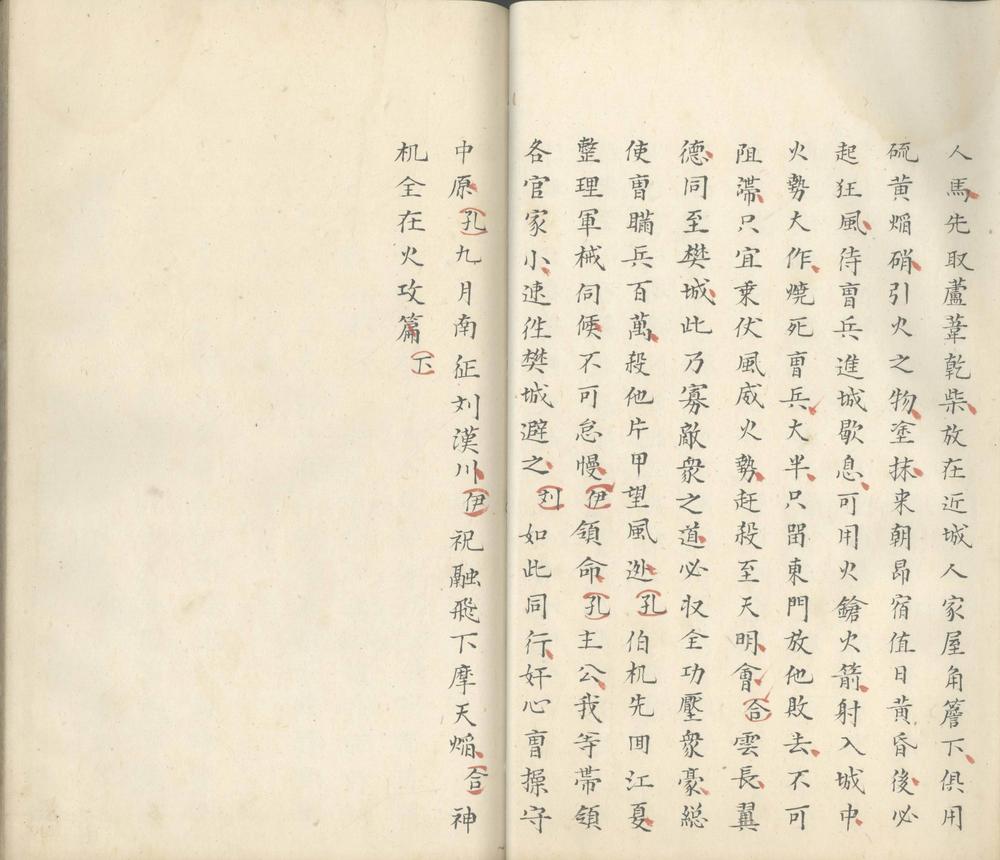 人馬先取蘆葦乾柴放在近城人家屋角簷下俱用
硫黄熖硝引火之物塗抹来朝昴宿值日黄昏後必
起狂風待曺兵進城歇息可用火鎗火箭射入城中
火勢大作燒死曺兵大半只畱東門放他敗去不可
阻滯只宜乗伏風威火勢赶殺至天明會合雲長翼
德同至樊城此乃寡敵衆之道必収全功壓衆豪総
使曺瞞兵百萬殺他片甲望風迯孔伯机先囬江夏
整理軍械伺候不可怠慢伊領命孔主公我等帯領
各官家小速徃樊城避之刘如此同行奸心曺操守
中原孔九月南征刘漢川伊祝融飛下摩天熖合神
机全在火攻篇下